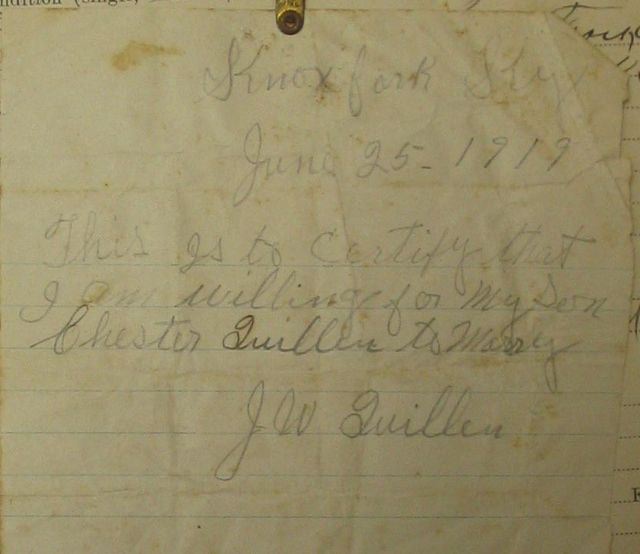 ndition (Single,
Knoxfork Ky
June 25-1919
This is to Certify that
I am willing for My Son
Chester Quillen to Marry
J W Quillen